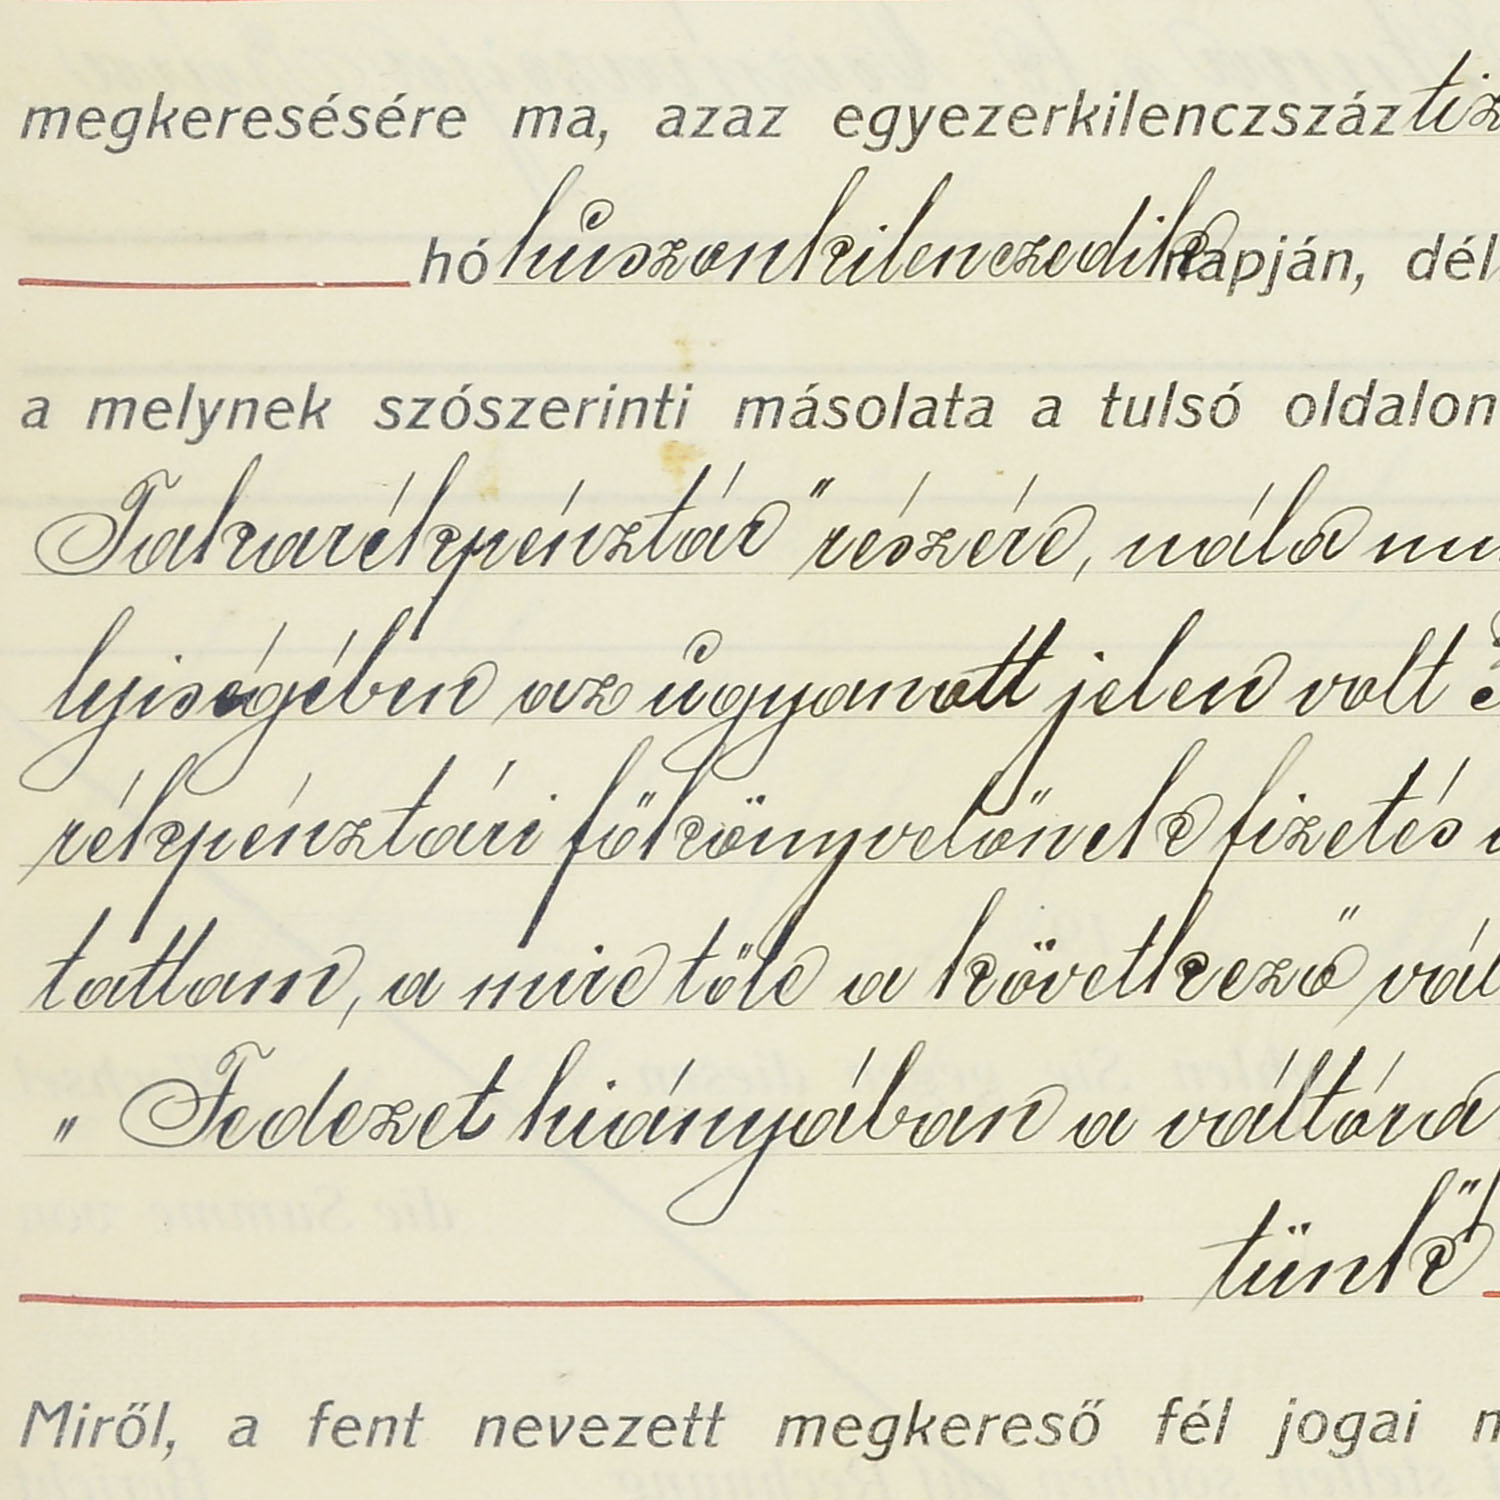 megkeresésére ma, azaz egyezerkilenczszáz tiz
hó huszonkilenczedik napján, dél
a melynek szószerinti másolata a tulsó oldalon
Takarékpénztár" részére, nála
lyiségében az ugyanott jelen volt
rékpénztári főkönyvelőnek fizetés
tattam, a mire tőle a következő vál
„Fedezet hiányában a váltóra
tünk"
Miről, a fent nevezett megkereső fél jogai